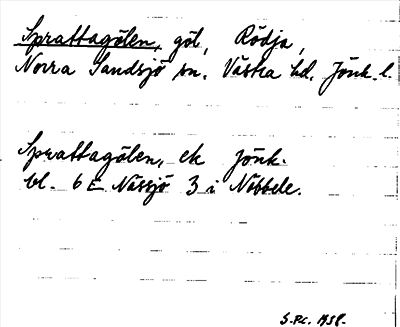 Sprattagölen, göl, Rödja,
Norra Sandsjö sn. Västra hd. Jönk. l.
Sprattagölen, ek Jönk.
bl. 6 E Nässjö 3 i Nöbbele.
1958.